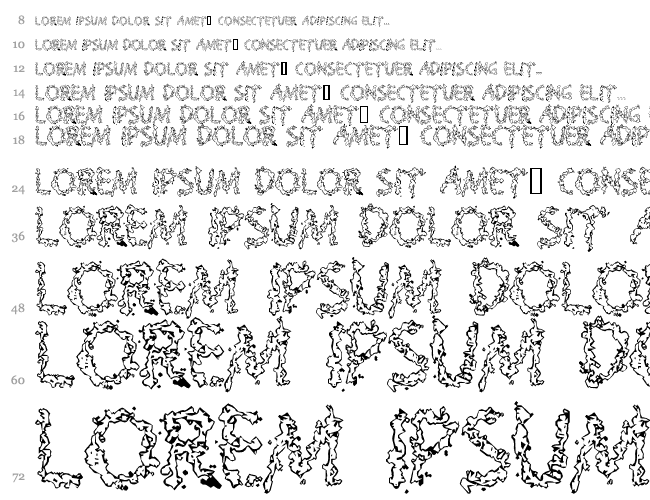 8 LOREM IPSUM DOLOR SIT AMET▯ CONSECTETUER ADIPISCING ELIT...
10 LOREM IPSUM DOLOR SIT AMET▯ CONSECTETUER ADIPISCING ELIT...
12 LOREM IPSUM DOLOR SIT AMET▯ CONSECTETUER ADIPISCING ELIT...
14 LOREM IPSUM DOLOR SIT AMET▯ CONSECTETUER ADIPISCING ELIT...
16 LOREM IPSUM DOLOR SIT AMET▯ CONSECTETUER ADIPISCING
18 LOREM IPSUM DOLOR SIT AMET▯ CONSECTETUER ADIP
24 LOREM IPSUM DOLOR SIT AMET▯ CONSE
36 LOREM IPSUM DOLOR SIT A
48 LOREM IPSUM DOLO
60 LOREM IPSUM DO
72 LOREM IPSUM